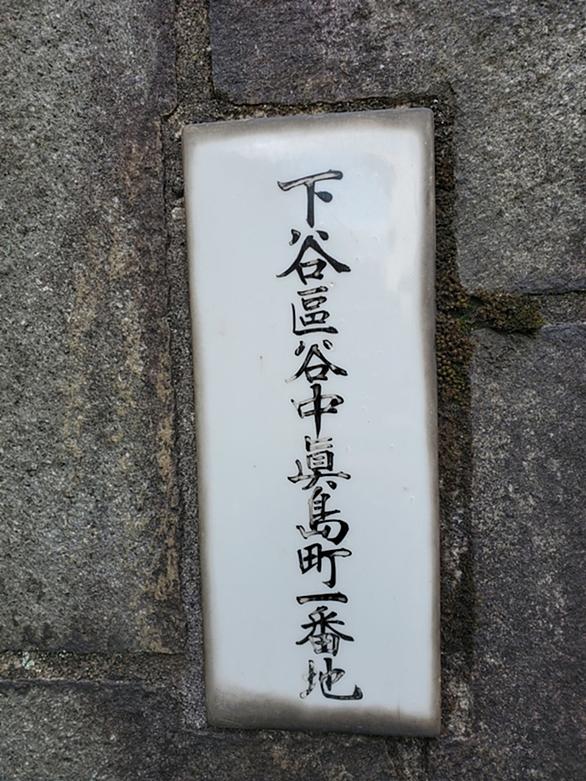 下谷區谷中眞島町一番地